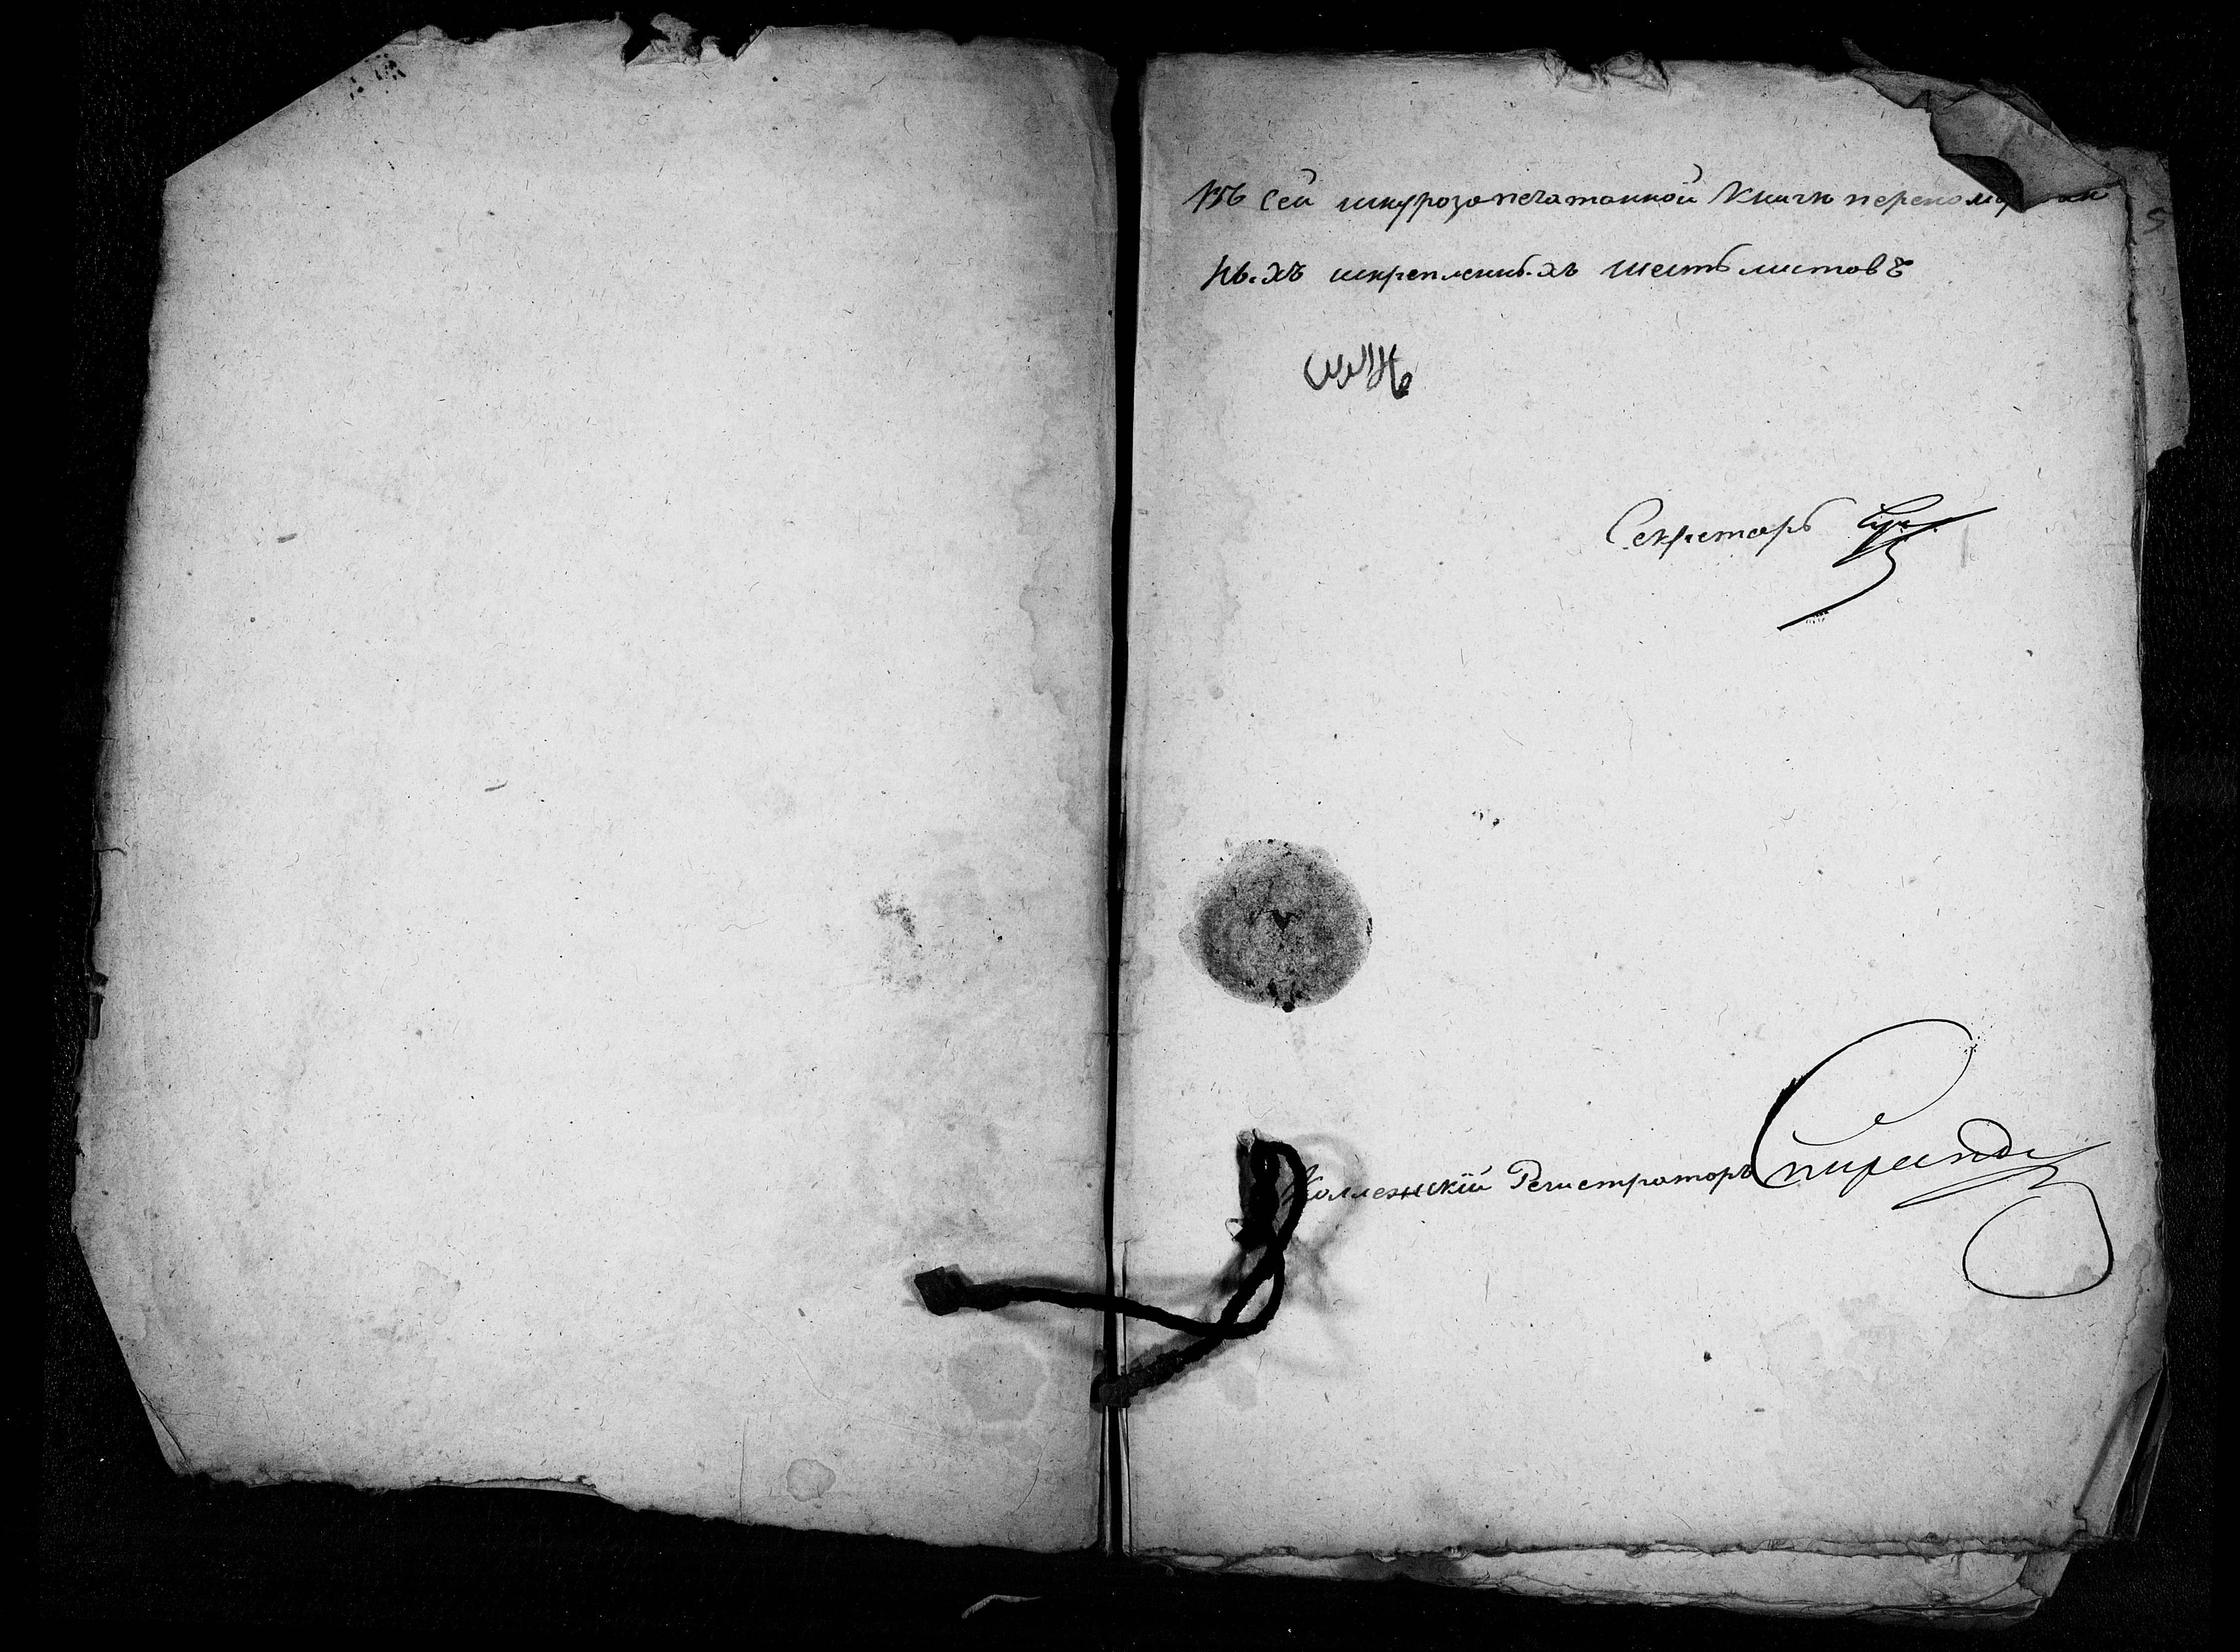 Въ сей шнурозапечатанной Книгѣ перено
ныхъ искрепленныхъ шесть листовъ
Секретарь
Коллежскій Регистраторъ
5